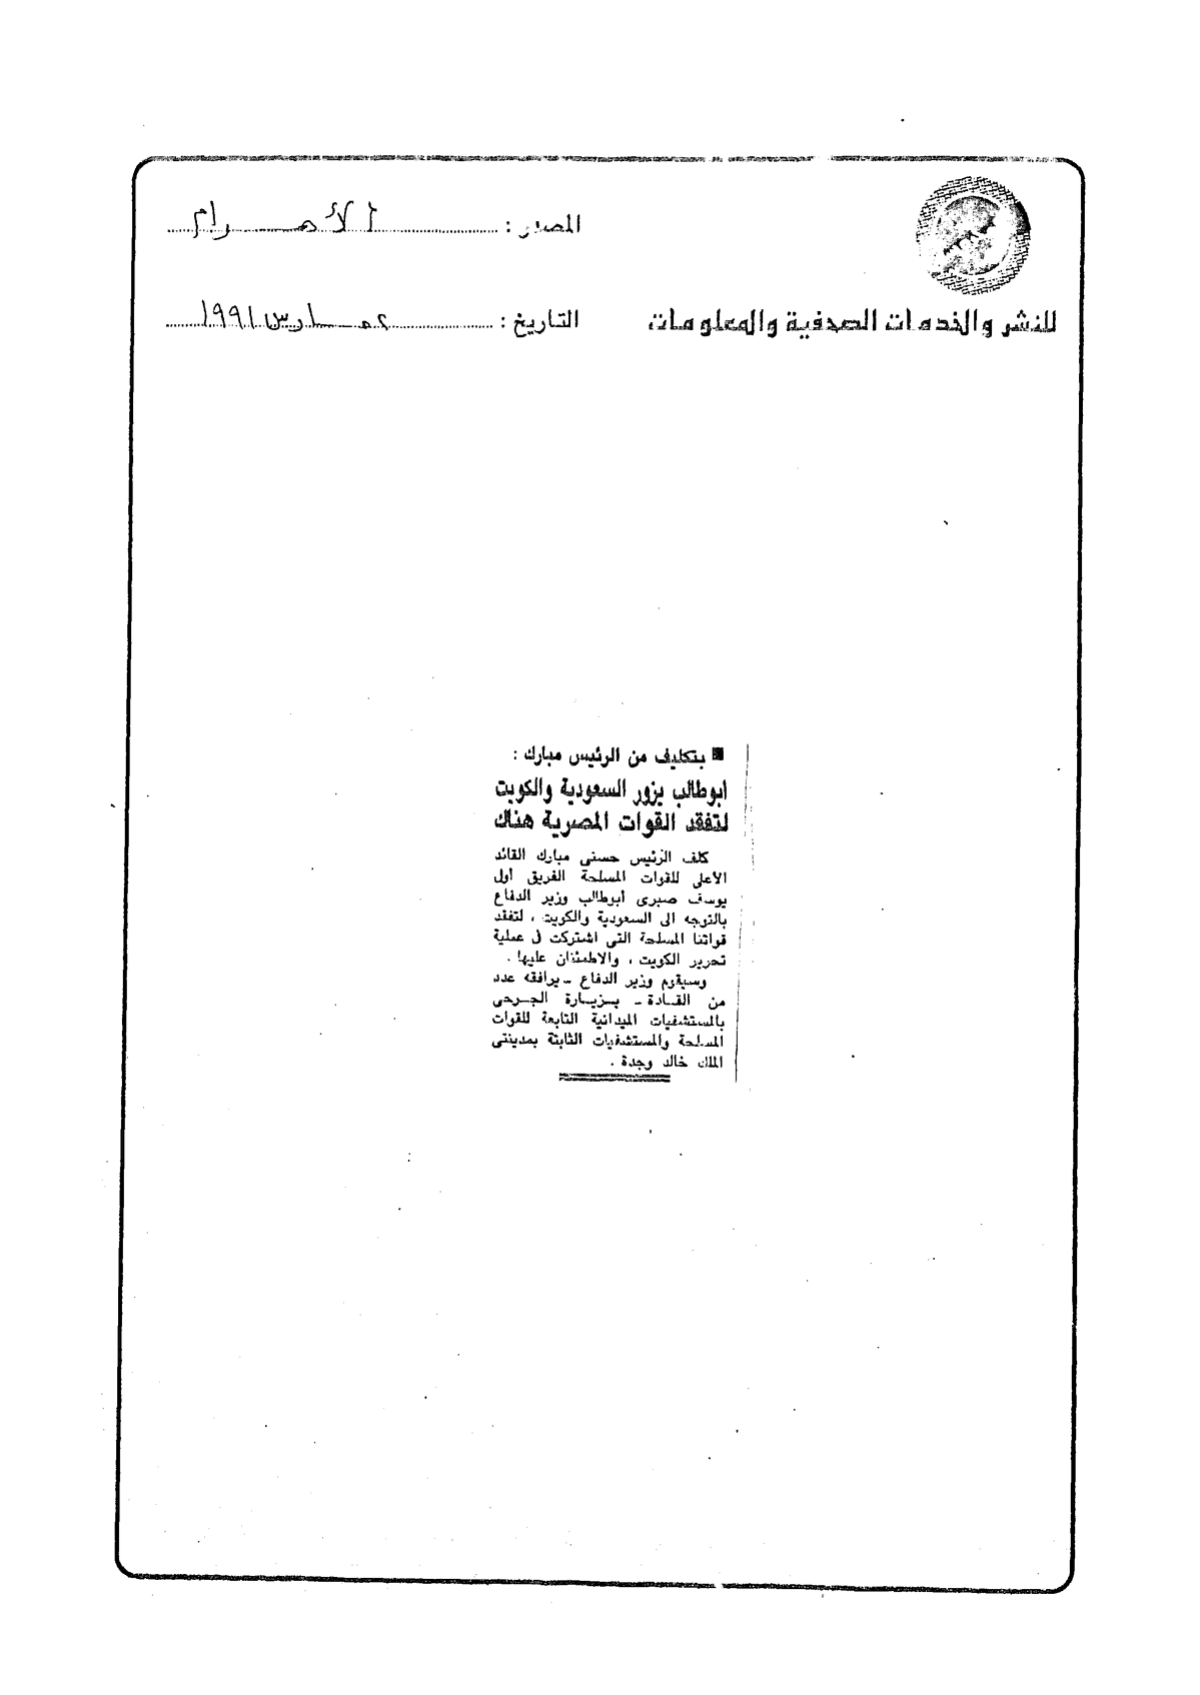 المصدر : الأهـــرام
للنشر والخدمات الصحفية والمعلومات
التاريخ : ٢ مـــارس ١٩٩١
■ بتكليف من الرئيس مبارك :
ابوطالب يزور السعودية والكويت
لتفقد القوات المصرية هناك
كلف الرئيس حسنى مبارك القائد
الأعلى للقوات المسلحة الفريق أول
يوسف صبرى أبوطالب وزير الدفاع
بالتوجه الى السعودية والكويت ، لتفقد
قواتنا المسلحة التى اشتركت فى عملية
تحرير الكويت ، والاطمئنان عليها .
وسيقوم وزير الدفاع ـ يرافقه عدد
من القـادة ـ بـزيـارة الجـرحى
بالمستشفيات الميدانية التابعة للقوات
المسلحة والمستشفيات الثابتة بمدينتى
الملك خالد وجدة .